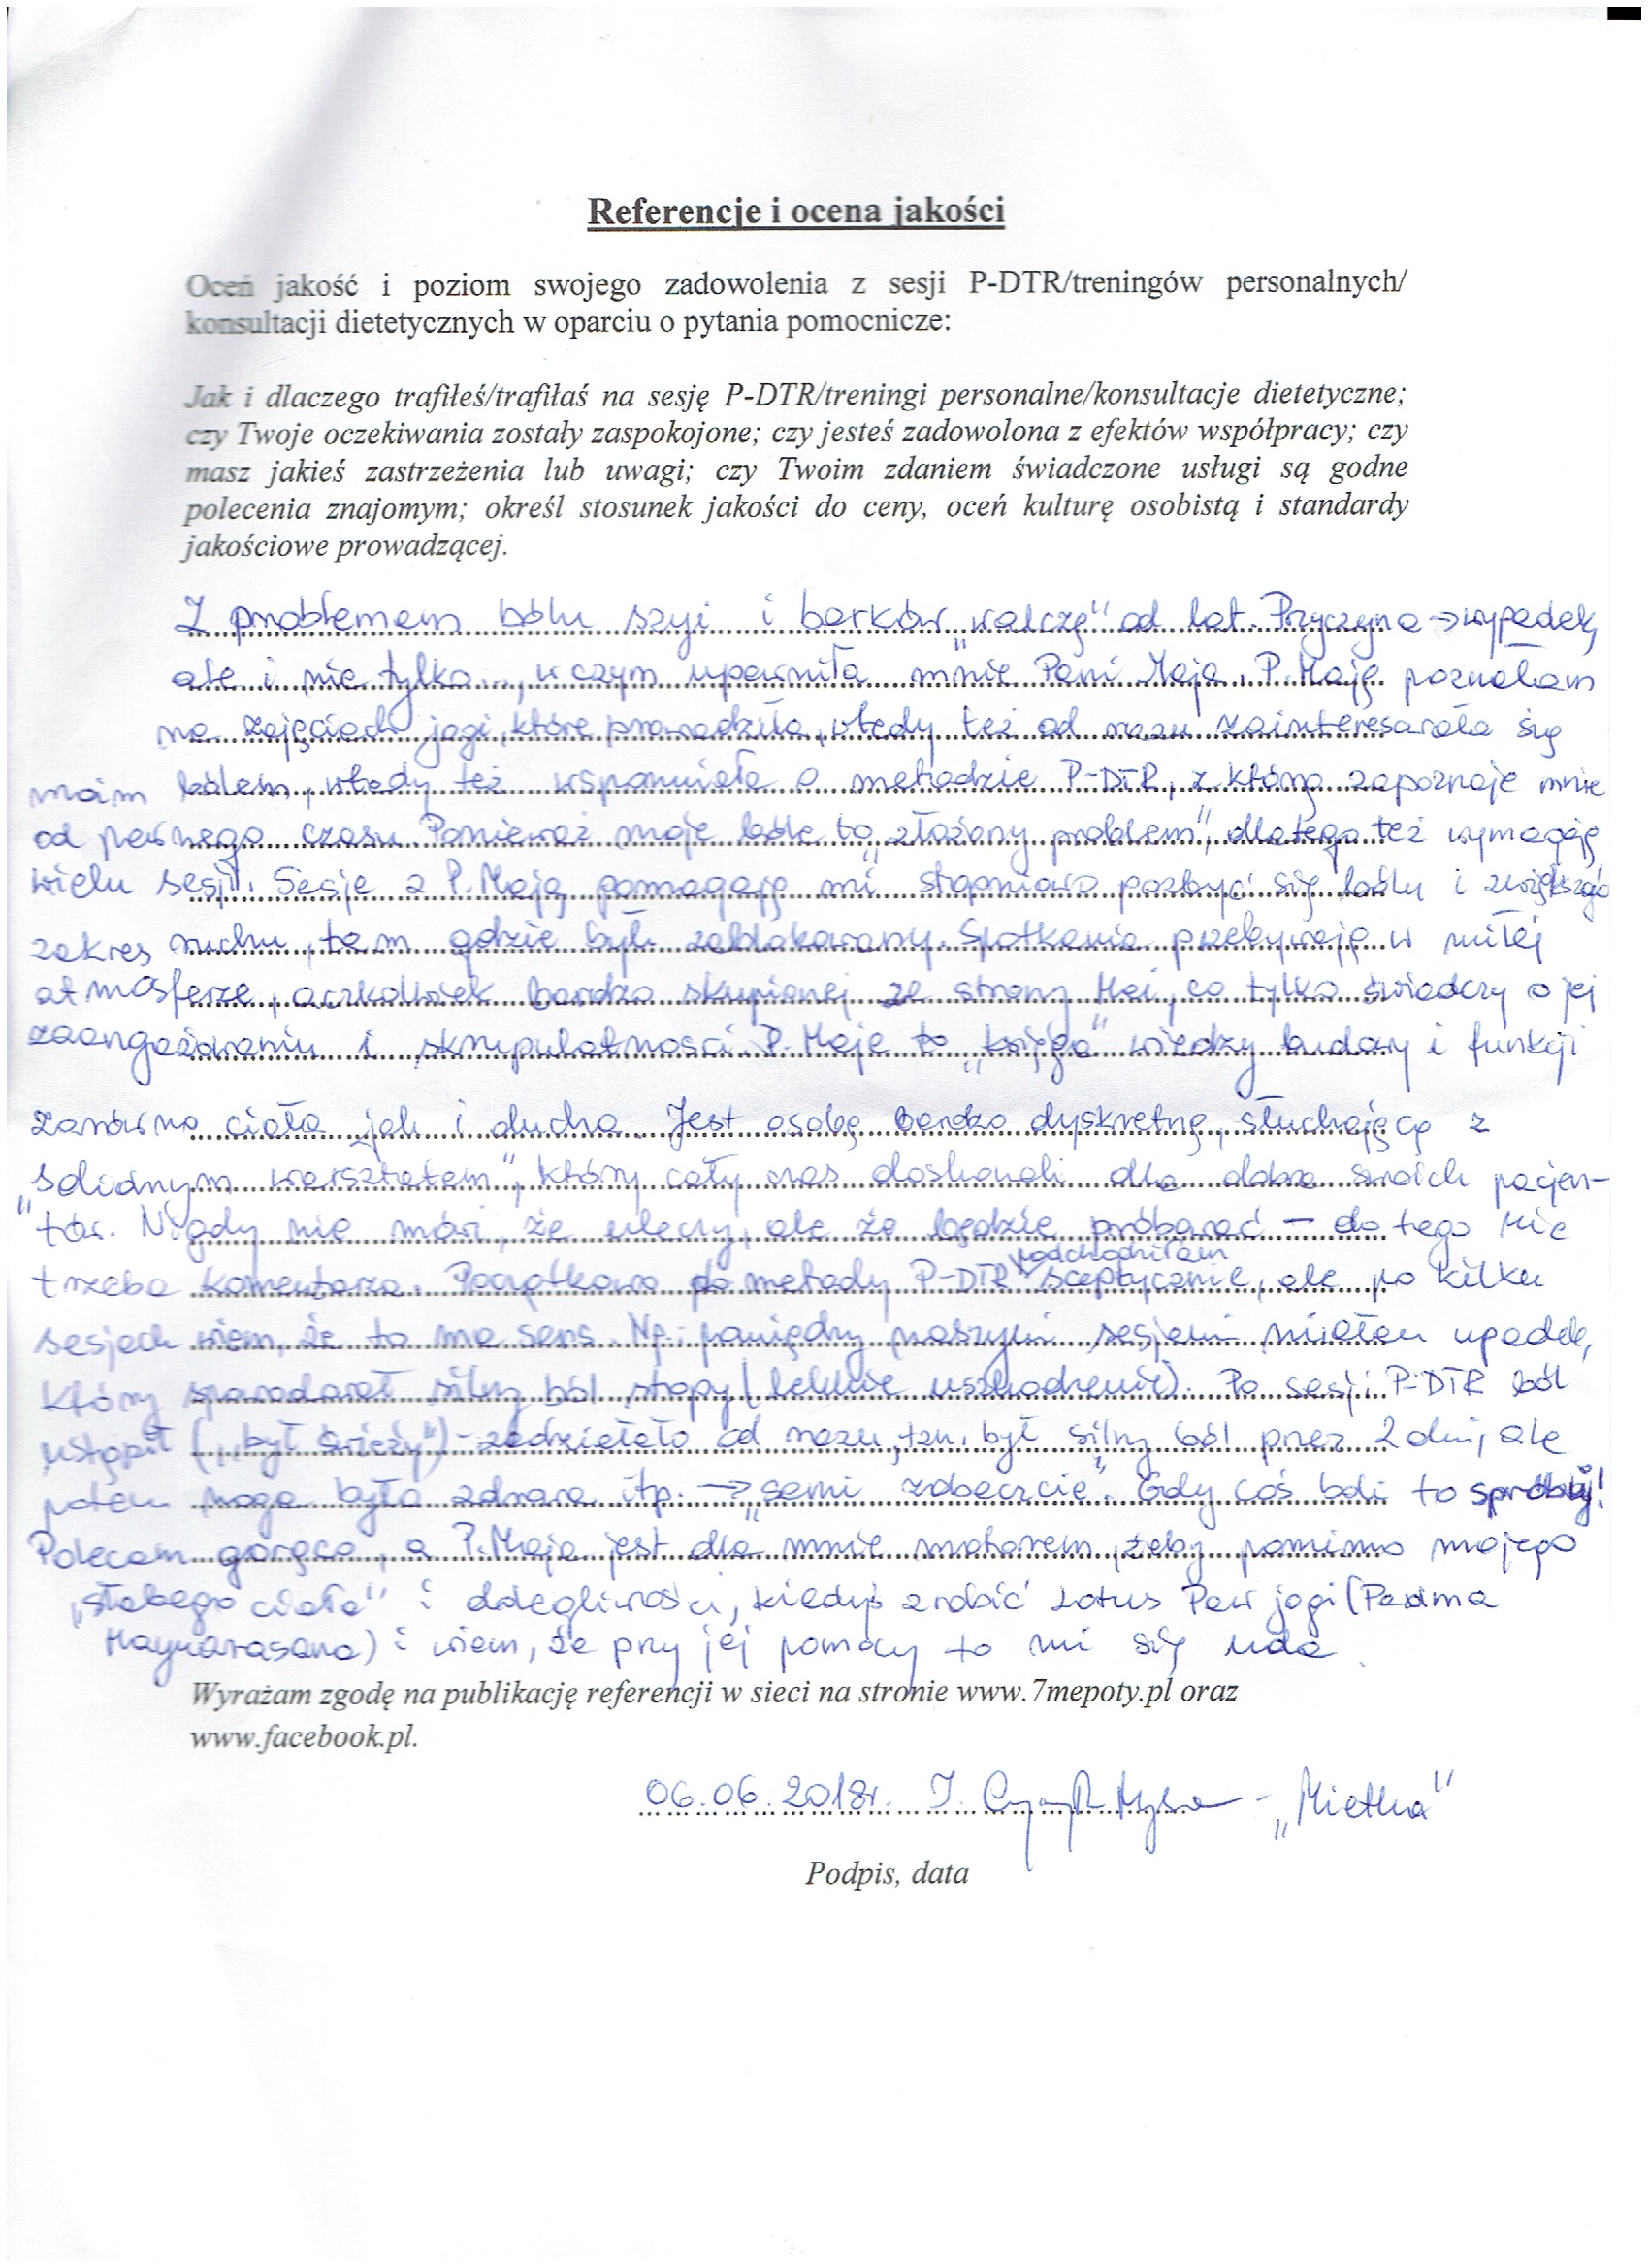 Referencje i ocena jakości
Oceń jakość i poziom swojego zadowolenia z sesji P-DTR/treningów personalnych/
konsultacji dietetycznych w oparciu o pytania pomocnicze:
Jak i dlaczego trafiłeś/trafiłaś na sesję P-DTR/treningi personalne/konsultacje dietetyczne;
czy Twoje oczekiwania zostały zaspokojone; czy jesteś zadowolona z efektów współpracy; czy
masz jakieś zastrzeżenia lub uwagi; czy Twoim zdaniem świadczone usługi są godne
polecenia znajomym; określ stosunek jakości do ceny, oceń kulturę osobistą i standardy
jakościowe prowadzącej.
Z problemem bólu szyi i barków „walczę" od lat. Przyczyna → wypadek,
ale i nie tylko..., w czym upewniła mnie Pani Maja. P. Maję poznałam
na zajęciach jogi, które prowadziła, wtedy też od razu zainteresowała się
moim bólem, wtedy też wspomniała o metodzie P-DTR, z którą zapoznaje mnie
od pewnego czasu. Ponieważ moje bóle to „złożony problem", dlatego też wymagają
wielu sesji. Sesje z P. Mają pomagają mi stopniowo pozbyć się bólu i
zakres ruchu, tam gdzie był zablokowany. Spotkania przebywają w miłej
atmosferze, aczkolwiek bardzo skupionej ze strony Mai, co tylko świadczy o jej
zaangażowaniu i skrupulatności. P. Maja to „księga" wiedzy budowy i funkcji
zarówno ciała jak i ducha. Jest osobą bardzo dyskretną, słuchającą z
„solidnym warsztatem", który cały czas doskonali dla dobra swoich pacjen-
tów. Nigdy nie mówi, że uleczy, ale że będzie próbować – do tego nie
trzeba komentarza. Początkowo do metody P-DTR podchodziłam sceptycznie, ale po kilku
sesjach wiem, że to ma sens. Np. pomiędzy naszymi sesjami miałam upadek,
który spowodował silny ból stopy (lekkie uszkodzenie). Po sesji P-DTR ból
ustąpił („był świeży") - zadziałało od razu, tzn. był silny ból przez 2 dni, ale
potem noga była zdrowa itp. → „sami zobaczcie". Gdy coś boli to spróbuj!
Polecam gorąco, a P. Maja jest dla mnie motorem, żeby pomimo mojego
„słabego ciała" i dolegliwości, kiedyś zrobić Lotus Paw jogi (Padma
Mayurasana) i wiem, że przy jej pomocy to mi się uda.
Wyrażam zgodę na publikację referencji w sieci na stronie www.7mepoty.pl oraz
www.facebook.pl.
06.06.2018r. - „Mietka"
Podpis, data